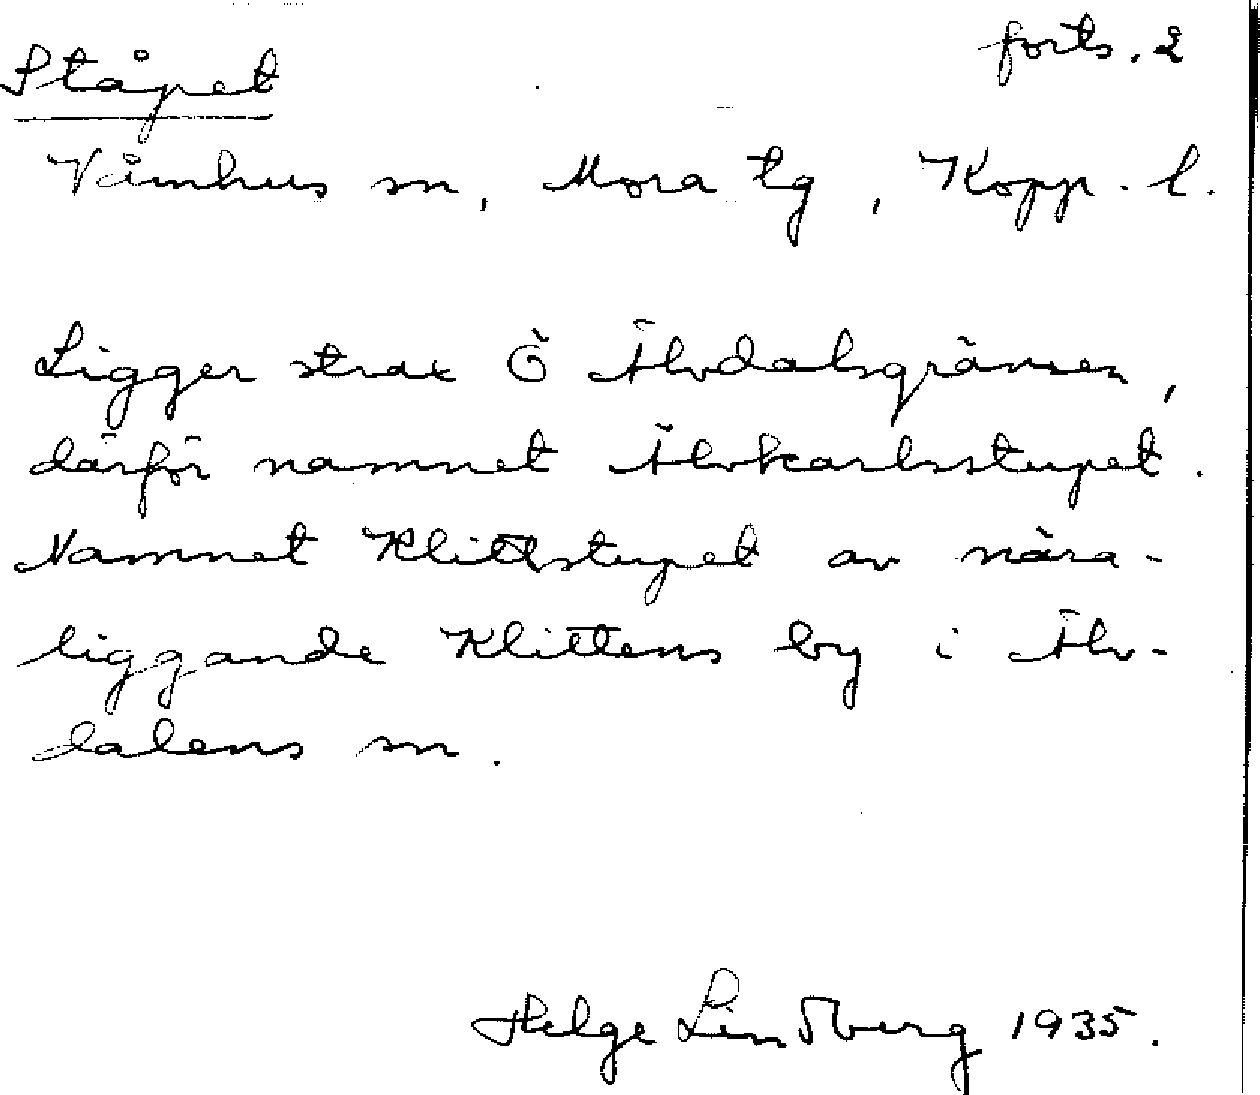 forts. 2
Ståpet
Våmhus sn, Mora tg, Kopp. l.
Ligger strax Ö Älvdalsgränsen,
därför namnet Älvkarlsstupet.
Namnet Klittstupet av nära-
liggande Klittens by i Älv-
dalens sn.
Helge Lindberg 1935.